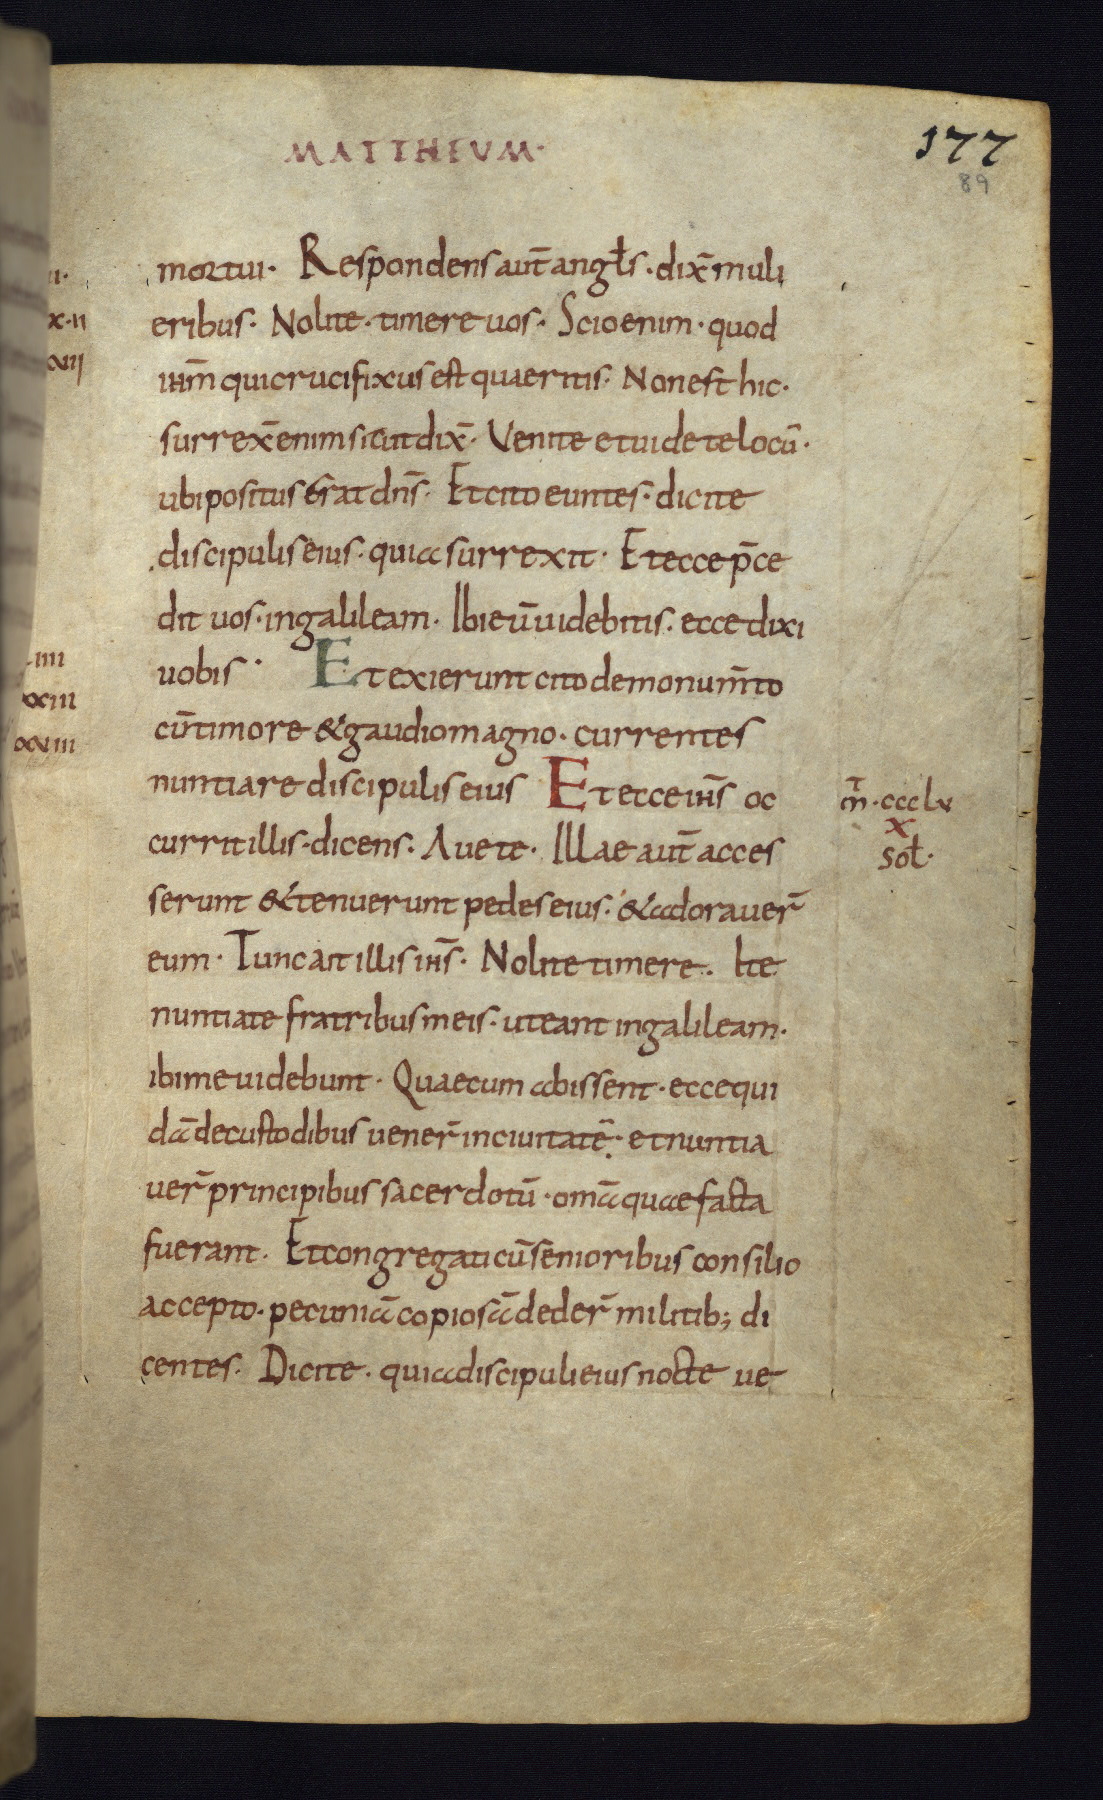 MATTHEUM·
177
89
mortui· Respondens aut̄ angłs· dix̄ muli
eribus· Nolite· timere uos· Scio enim· quod
ihm̄ qui crucifixus est quaeritis· Non est hic·
surrex̄ enim sicut dix̄· Venite et uidete locū·
ubi positus erat dn̄s· Et cito euntes· dicite
discipulis eius· quia surrexit· Et ecce p̄ce
dit uos· in galileam· Ibi eū uidebitis· ecce dixi
uobis· Et exierunt cito de monum̄to
cū timore & gaudio magno· currentes
nuntiare discipulis eius Et ecce ih̄s oc
currit illis· dicens· Auete· Illae aut̄ acces
serunt & tenuerunt pedes eius· & adorauer̄
eum· Tunc ait illis ih̄s· Nolite timere· Ite
nuntiate fratribus meis· ut eant in galileam·
ibi me uidebunt· Quae cum abissent· ecce qui
dā de custodibus uener̄ in ciuitatē· et nuntia
uer̄ principibus sacerdotū· omā quae facta
fuerant· Et congregati cū senioribus consilio
accepto· pecuniā copiosā deder̄ militib; di
centes· Dicite· quia discipuli eius nocte ue
m̄· ccclv
x
soł·